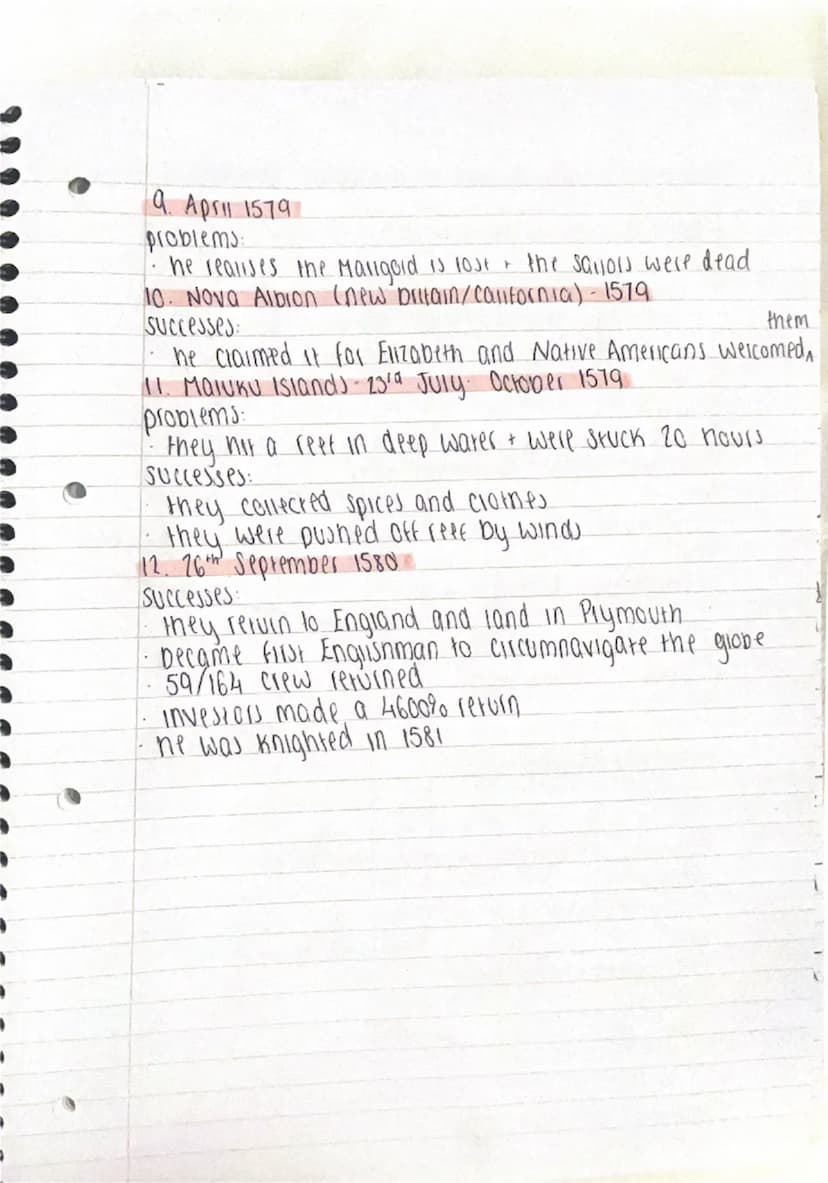 9. April 1579
problems:
· he realises the Marigold is lost + the sailors were dead
10. Nova Albion (new britain/california) - 1579
successes:
· he claimed it for Elizabeth and Native Americans welcomed them
11. Maluku Islands - 23rd July - October 1579
problems:
· they hit a reef in deep water + were stuck 20 hours
successes:
· they collected spices and clothes
· they were pushed off reef by winds
12. 26th September 1580
successes:
· they return to England and land in Plymouth
· became first Englishman to circumnavigate the globe
· 59/164 crew returned
· investors made a 4600% return
· he was knighted in 1581